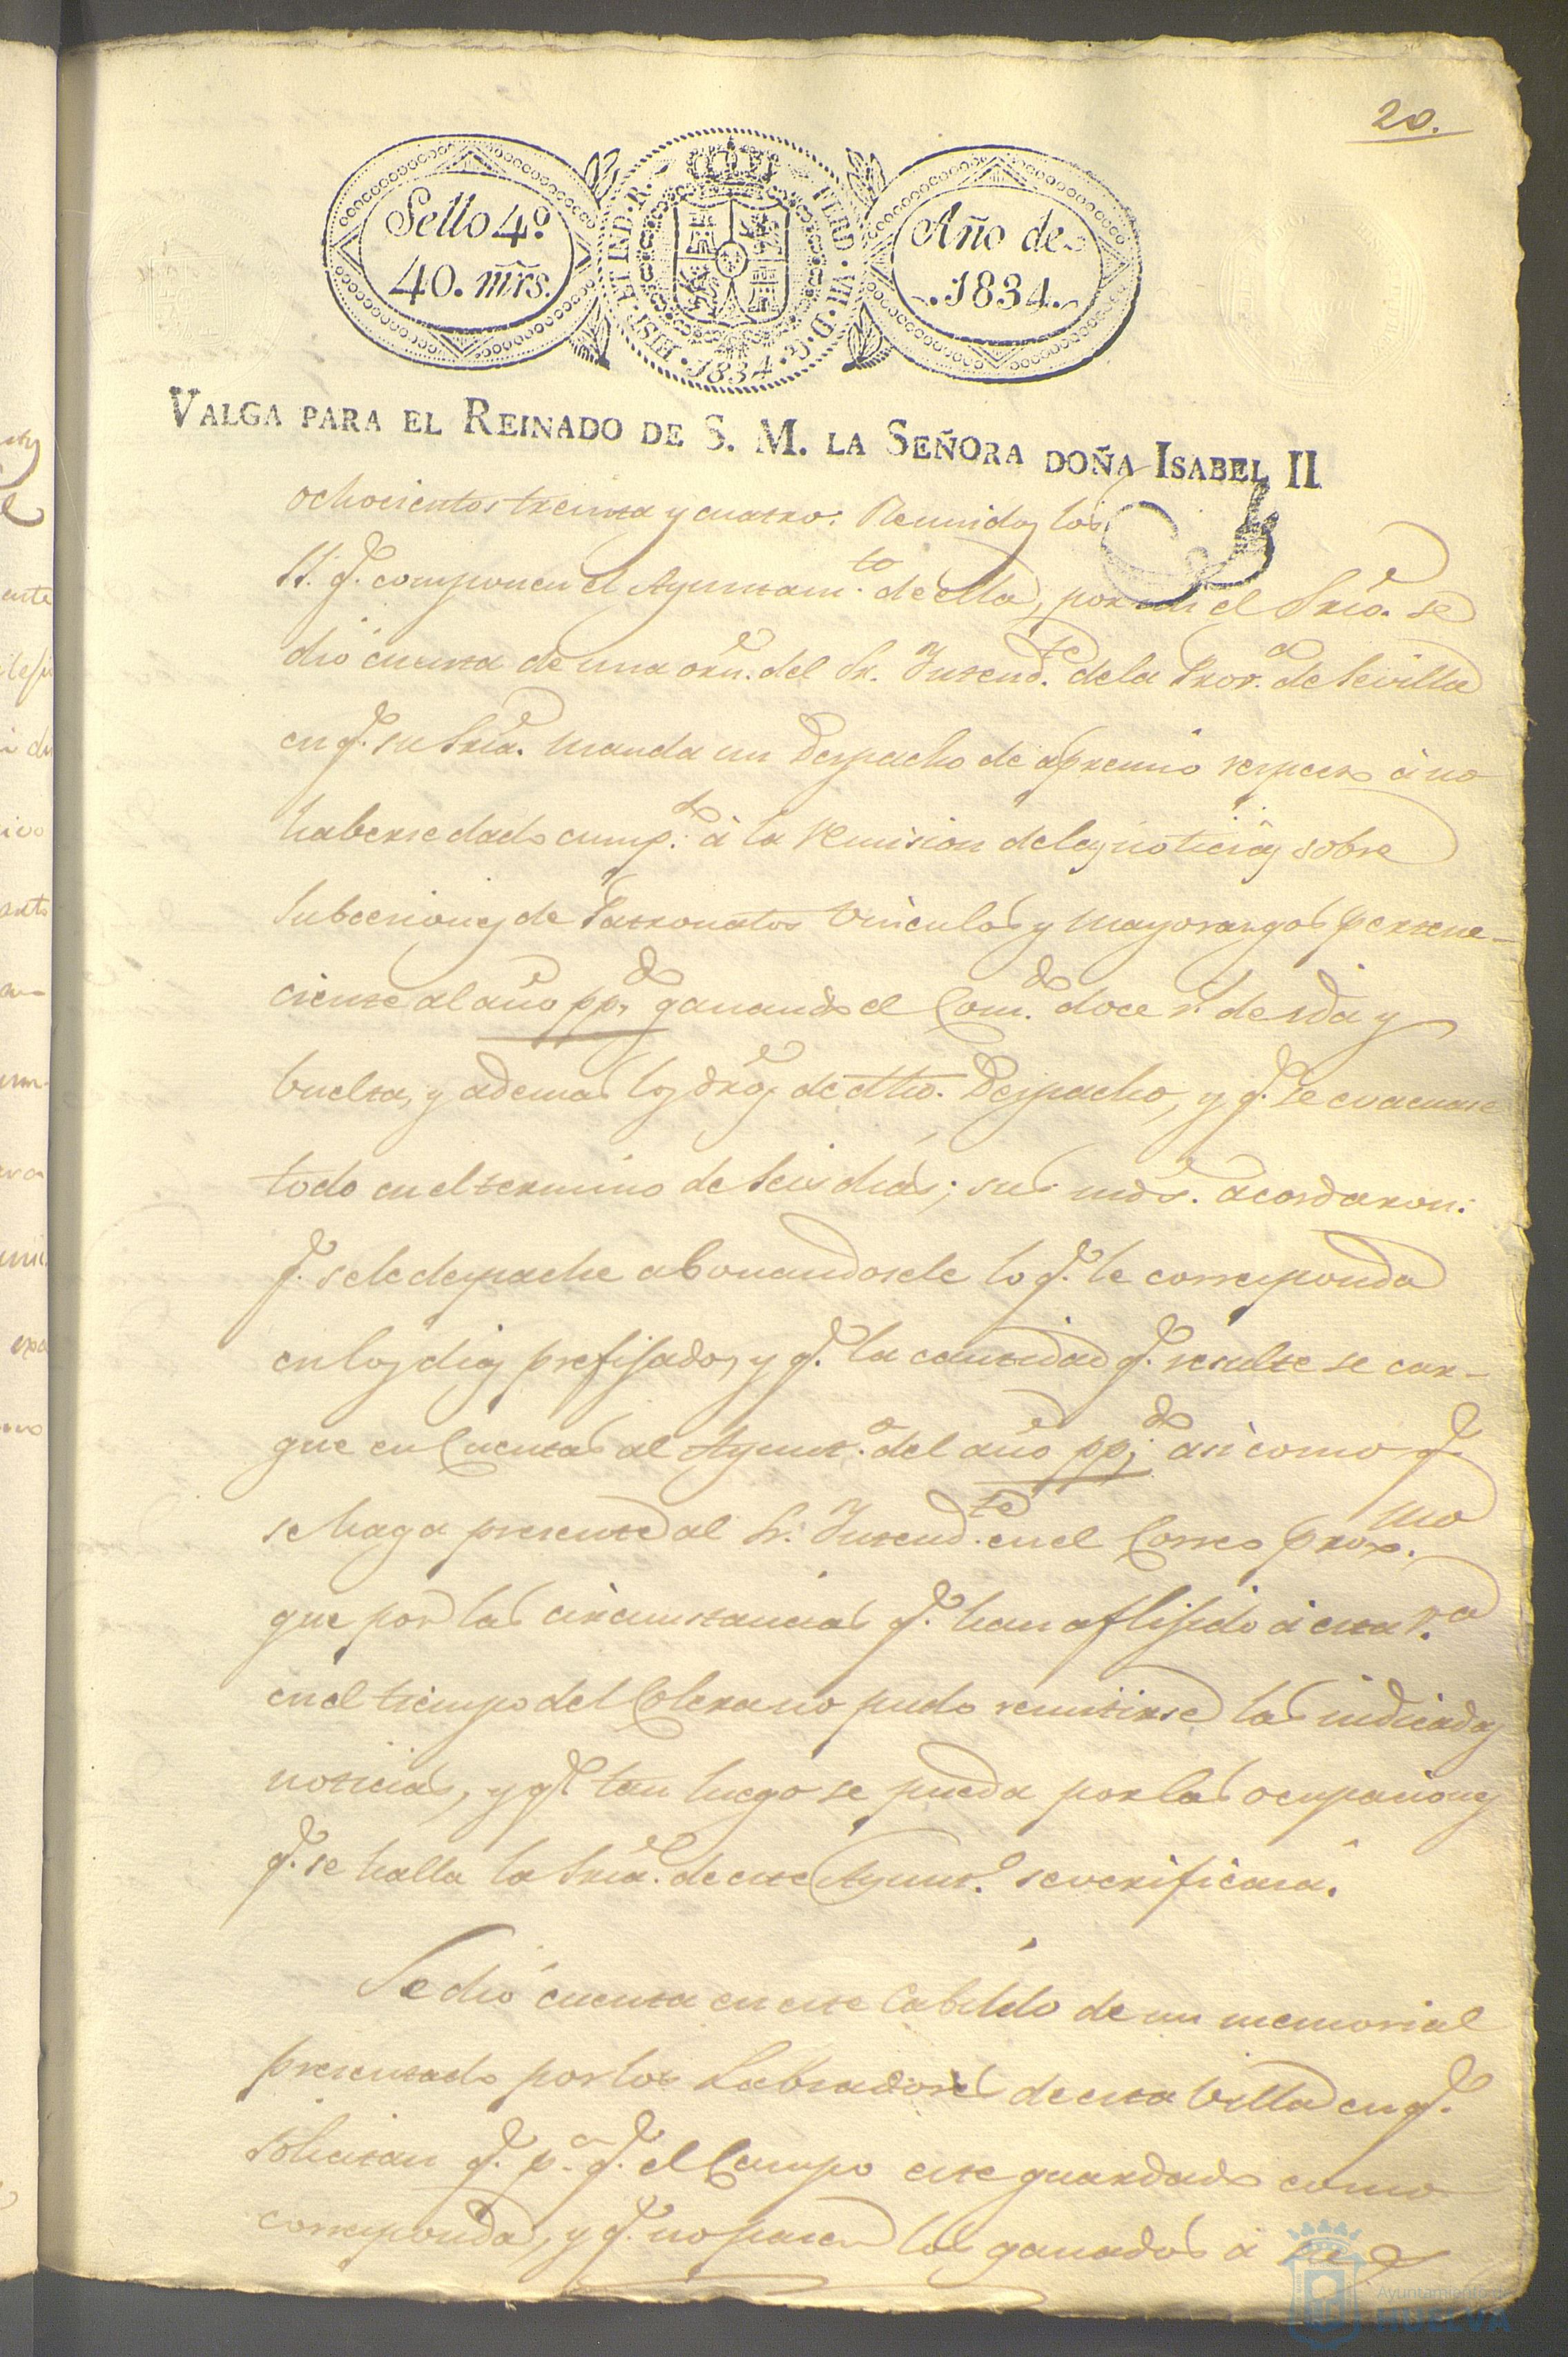 20.
Sello 4º
40. mrs.
HISP. ET IND. R. FERD. VII. D. G. 1834.
Año de
1834.
VALGA PARA EL REINADO DE S. M. LA SEÑORA DOÑA ISABEL II
ochocientos treinta y cuatro: Reunidos los
SS. q.e componen el Ayuntam.to de ella, por mi el Srio. se
dió cuenta de una orn. del Sr. Intend.te de la Prov.a de Sevilla
en q.e su Sria. manda un Despacho de apremio respecto á no
haberse dado cump.to à la remision de las noticias sobre
Subcesiones de Patronatos Vinculos y Mayorazgos pertene-
ciente al año pp.do ganando el Com.do doce r.s de ida y
buelta, y ademas los dros de dho. Despacho, y q.e se evacuase
todo en el termino de seis dias; sus mds. acordaron:
q.e se le despache abonandosele lo q.e le corresponda
en los dias prefijados, y q.e la cantidad q.e resulte se car-
gue en Cuentas al Ayunt.o del año pp.do asi como q.e
se haga presente al Sr. Intend.te en el Correo prox.mo
que por las circunstancias q.e han aflijido á esta V.a
en el tiempo del Colera no pudo remitirse las indicadas
noticias, y q.e tan luego se pueda por las ocupaciones
q.e se halla la Sria. de este Ayunt.o se verificará.
Se dió cuenta en este Cabildo de un memorial
presentado por los Labradores de esta Villa en q.e
solicitan q.e p.a q.e el Campo este guardado como
corresponda, y q.e no pasen los ganados á
Ayuntamiento de
HUELVA